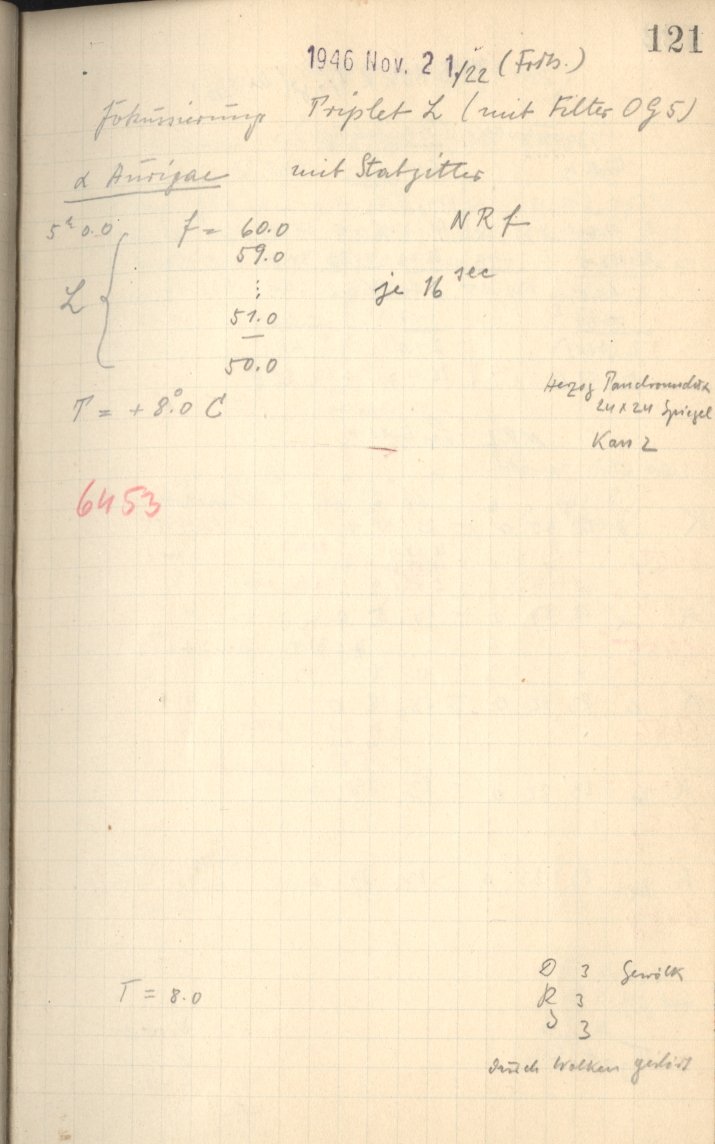 121
1946 Nov. 21/22 (Frdb.)
Fokussierung Triplet L (mit Filter OG5)
α Aurigae mit Stabgitter
5h 0.0 f = 60.0 NRf
59.0
⋮ je 16 sec
L 51.0
50.0
T = + 8.°0 C
Herzog
24 x 24 Spiegel
6453
T = 8.0
D 3 Gewölk
R 3
3
durch Wolken